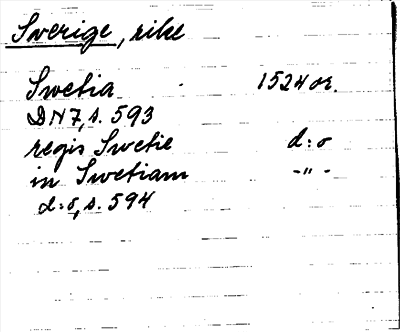 Sverige, rike
Swetia 1524 or.
DN 7, s. 593
regis Swetie d:o
in Swetiam -"-
d:o, s. 594